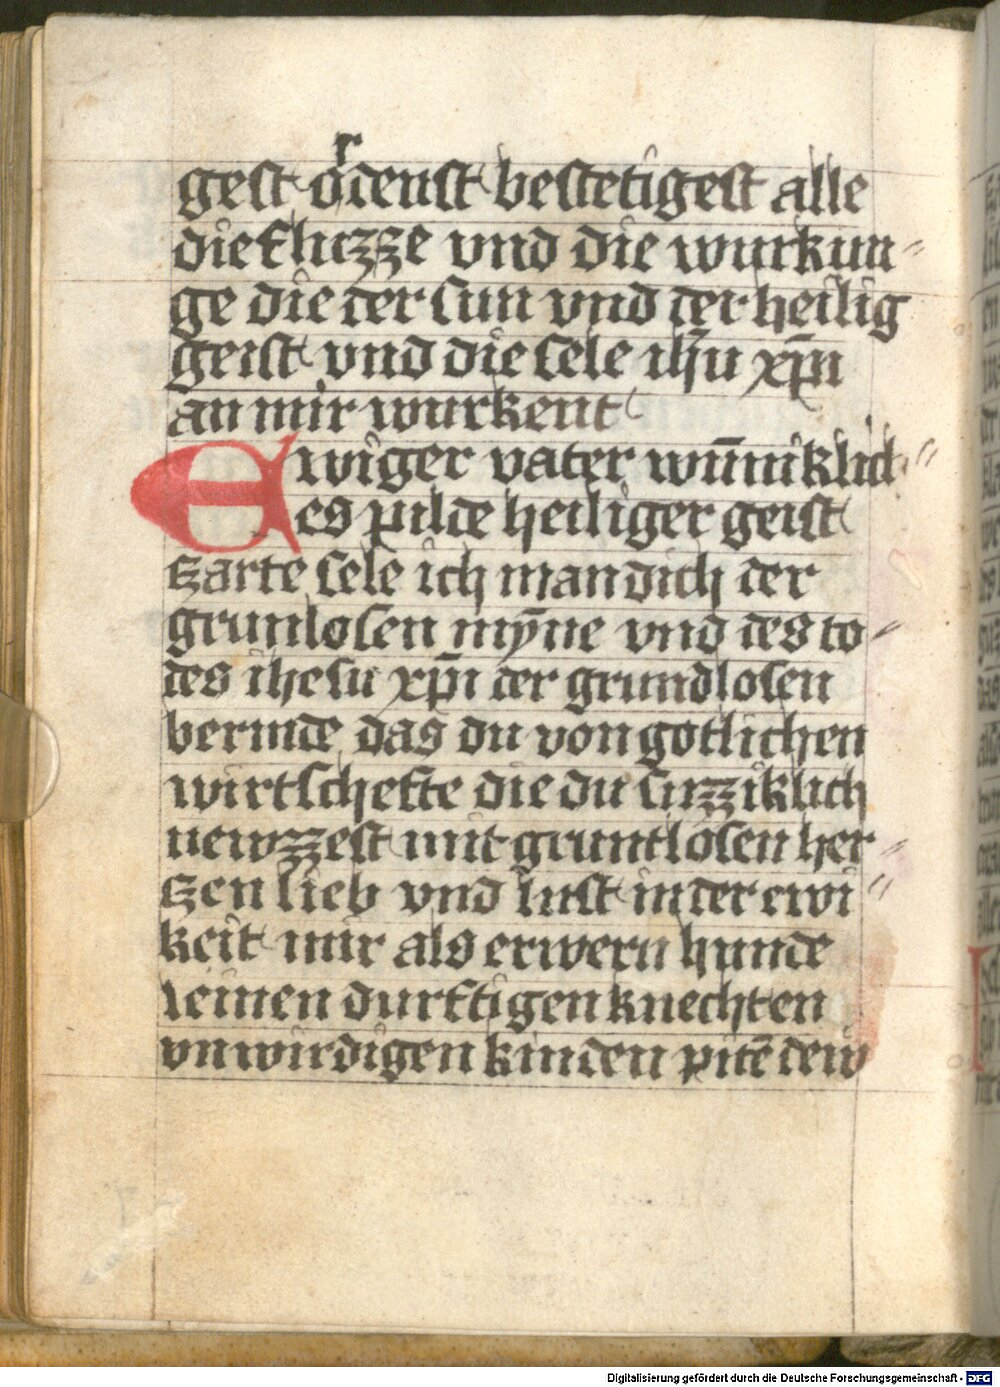 gest ordenst bestetigest alle
die fluzze vnd die wurkun〃
ge die der sun vnd der heilig
geist vnd die sele ih̄u xp̄i
an mir wurkent
Ewiger vater wūniklich〃
es pilde heiliger geist
zarte sele ich man dich der
grunlosen mȳne vnd des to〃
des ihesu xp̄i der grundlosen
bermde das du von gotlichen
wirtschefte die du suzziklich
newzzest mit gruntlosen her〃
zen lieb vnd lust in der ewi〃
keit mir als erwern hunde
deinen durftigen knechten
vnwirdigen kinden pitē dew
Digitalisierung gefördert durch die Deutsche Forschungsgemeinschaft - DFG